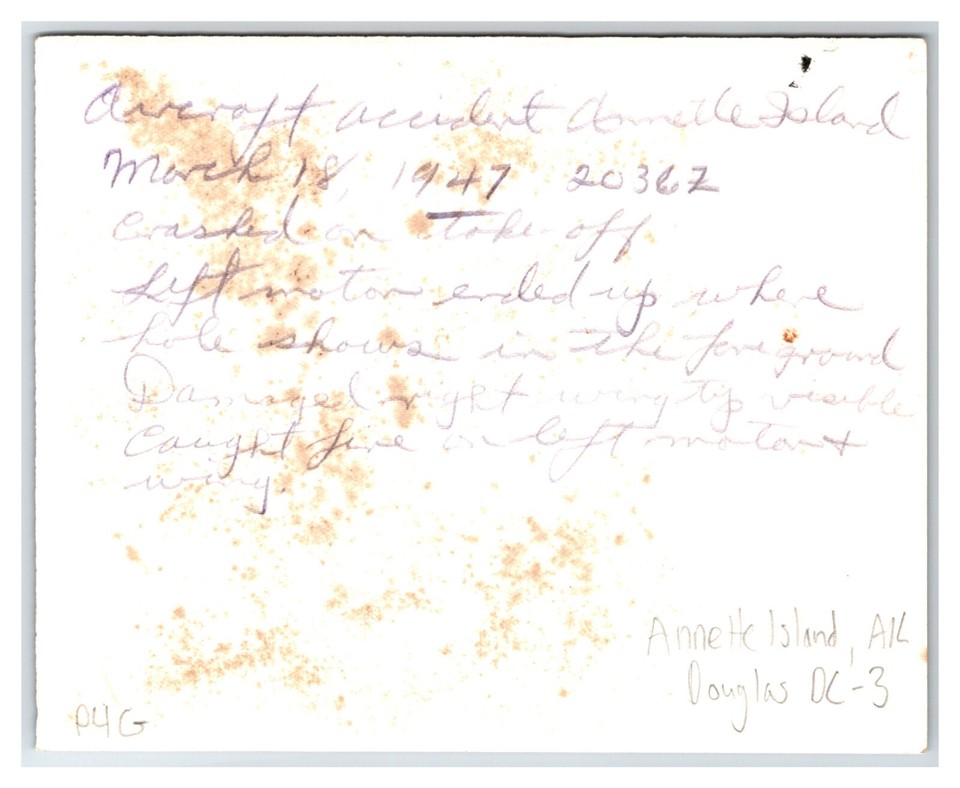 Aircraft accident Annette Island
March 18, 1947 2036Z
Crashed on take-off
Left motor ended up where
hole shows in the foreground
Damaged right wing tip visible
Caught fire on left motor &
wing.
Annette Island, AK
Douglas DC-3
P4G